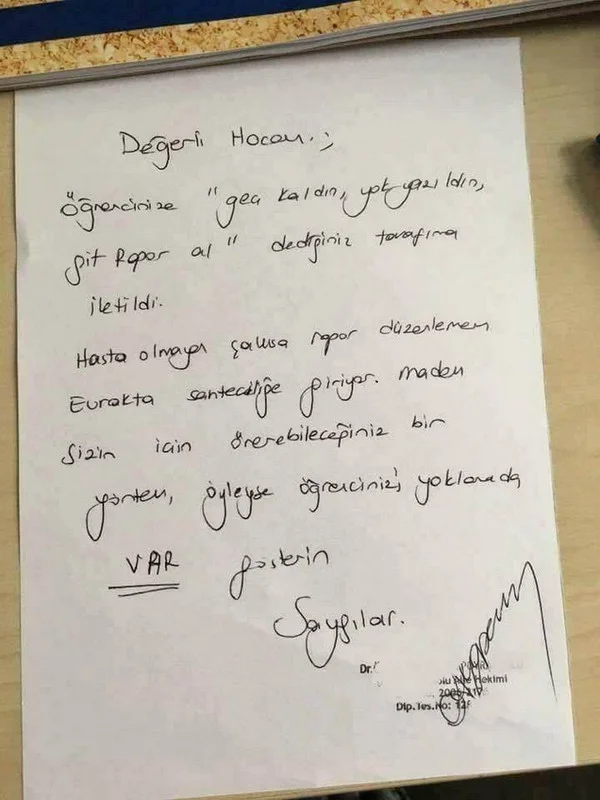 Değerli Hocam.;
Öğrencinize "geç kaldın, yok yazıldın,
git Rapor al" dediğiniz tarafıma
iletildi.
Hasta olmayan şahısa rapor düzenlemem
Evrakta sahteciliğe giriyor. madem
Sizin için önerebileceğiniz bir
yöntem, öyleyse öğrencinizi yoklamada
VAR gösterin
Saygılar.
Dr.
Hekimi
Dip.Tes.No: